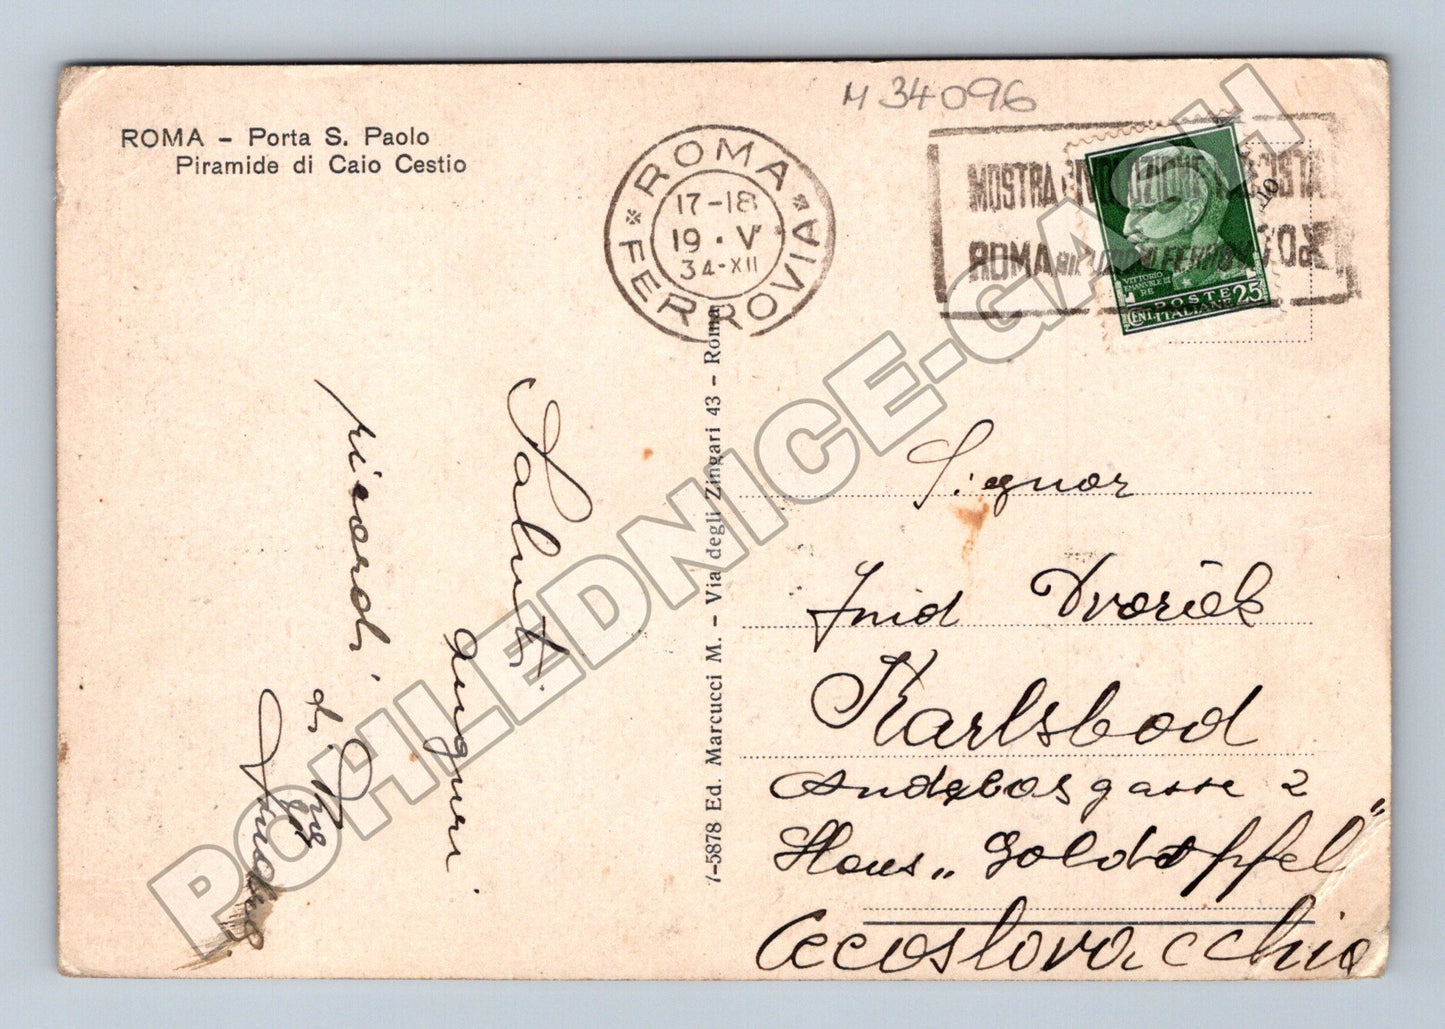 M 34096
ROMA – Porta S. Paolo
Piramide di Caio Cestio
ROMA
17-18
19·V
34-XII
FERROVIA
MOSTRA
ROMA
VITTORIO
EMANUELE III
RE
CENT. POSTE 25
ITALIANE
7-5878 Ed. Marcucci M. - Via degli Zingari 43 - Roma
Saluti
auguri
ricordi
di
Signor
Dvořák
Karlsbad
gasse 2
Haus „Goldapfel"
Cecoslovacchia
POHLEDNICE-GASH